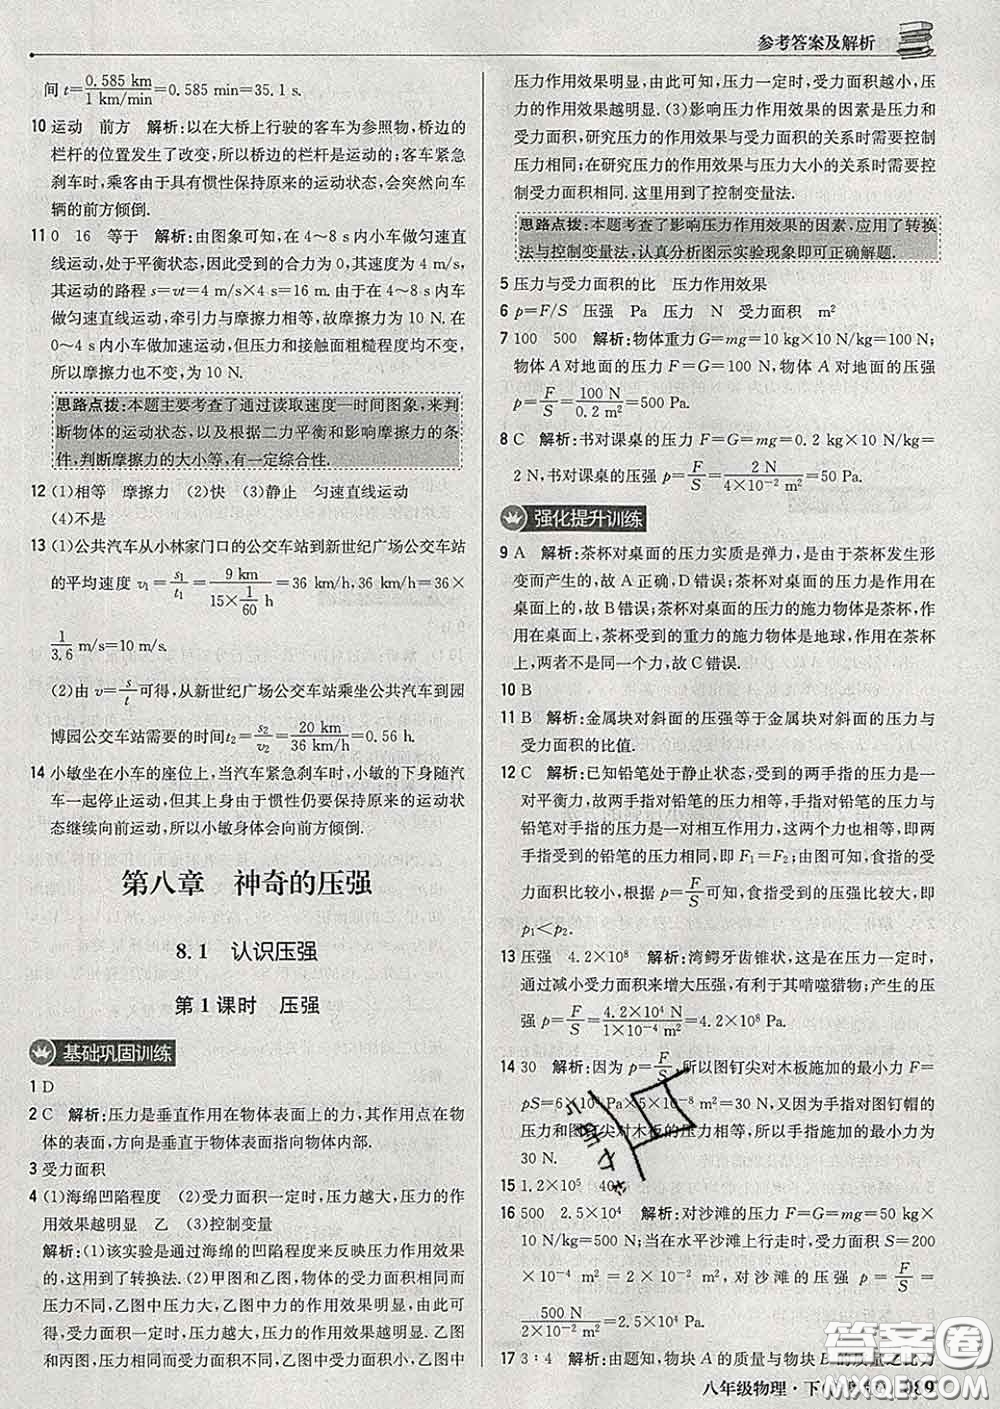 参考答案及解析
间 t=0.585 km/1 km/min=0.585 min=35.1 s.
10 运动　前方　解析:以在大桥上行驶的客车为参照物,桥边的
栏杆的位置发生了改变,所以桥边的栏杆是运动的;客车紧急
刹车时,乘客由于具有惯性保持原来的运动状态,会突然向车
辆的前方倾倒.
11 0　16　等于　解析:由图象可知,在 4～8 s 内小车做匀速直
线运动,处于平衡状态,因此受到的合力为 0,其速度为 4 m/s,
其运动的路程 s=vt=4 m/s×4 s=16 m. 由于在 4～8 s 内车
做匀速直线运动,牵引力与摩擦力相等,故摩擦力为 10 N. 在
0～4 s 内小车做加速运动,但压力和接触面粗糙程度均不变,
所以摩擦力也不变,为 10 N.
思路点拨:本题主要考查了通过读取速度—时间图象,来判
断物体的运动状态,以及根据二力平衡和影响摩擦力的条
件,判断摩擦力的大小等,有一定综合性.
12 (1)相等　摩擦力　(2)快　(3)静止　匀速直线运动
(4)不是
13 (1)公共汽车从小林家门口的公交车站到新世纪广场公交车站
的平均速度 v₁=s₁/t₁=9 km/(15×1/60 h)=36 km/h,36 km/h=36×
1/3.6 m/s=10 m/s.
(2)由 v=s/t可得,从新世纪广场公交车站乘坐公共汽车到园
博园公交车站需要的时间t₂=s₂/v₂=20 km/36 km/h=0.56 h.
14 小敏坐在小车的座位上,当汽车紧急刹车时,小敏的下身随汽
车一起停止运动,但其上身由于惯性仍要保持原来的运动状
态继续向前运动,所以小敏身体会向前方倾倒.
第八章　神奇的压强
8.1　认识压强
第 1 课时　压强
基础巩固训练
1 D
2 C　解析:压力是垂直作用在物体表面上的力,其作用点在物
体的表面,方向是垂直于物体表面指向物体内部.
3 受力面积
4 (1)海绵凹陷程度　(2)受力面积一定时,压力越大,压力的作
用效果越明显　乙　(3)控制变量
解析:(1)该实验是通过海绵的凹陷程度来反映压力作用效果
的,这用到了转换法.(2)甲图和乙图,受力面积相同而
压力不同,乙图中压力大,乙图中力的作用效果明显,由此可
得,受力面积一定时,压力越大,压力的作用效果越明显. 乙图
和丙图,压力相同而受力面积不同,乙图中受力面积小,乙图中
压力作用效果明显,由此可知,压力一定时,受力面积越小,压
力的作用效果越明显.(3)影响压力作用效果的因素是压力和
受力面积,研究压力的作用效果与受力面积的关系时需要控制
压力相同;在研究压力的作用效果与压力大小的关系时需要控
制受力面积相同. 这里用到了控制变量法.
思路点拨:本题考查了影响压力作用效果的因素,应用了转换
法与控制变量法,认真分析图示实验现象即可正确解题.
5 压力与受力面积的比　压力作用效果
6 p=F/S　压强　Pa　压力　N　受力面积　m²
7 100　500　解析:物体重力 G=mg=10 kg×10 N/kg=100 N;
物体 A 对地面的压力 F=G=100 N, 物体 A 对地面的压强
p=F/S=100 N/0.2 m²=500 Pa.
8 C　解析:书对课桌的压力 F=G=mg=0.2 kg×10 N/kg=
2 N,书对课桌的压强 p=F/S=2 N/4×10⁻² m²=50 Pa.
强化提升训练
9 A　解析:茶杯对桌面的压力实质是弹力,是由于茶杯发生形
变而产生的,故 A 正确,D 错误;茶杯对桌面的压力是作用在
桌面上的,故 B 错误;茶杯对桌面的压力的施力物体是茶杯,作
用在桌面上,茶杯受到的重力的施力物体是地球,作用在茶杯
上,两者不是同一个力,故 C 错误.
10 B
11 B　解析:金属块对斜面的压强等于金属块对斜面的压力与
受力面积的比值.
12 C　解析:已知铅笔处于静止状态,受到的两手指的压力是一
对平衡力,故两手指对铅笔的压力相等,手指对铅笔的压力与
铅笔对手指的压力是一对相互作用力,这两个力也相等,即两
手指受到的铅笔的压力相同,即 F₁=F₂;由图可知,食指的受
力面积比较小,根据 p=F/S可知,食指受到的压强比较大,即
p₁<p₂.
13 压强　4.2×10⁸　解析:湾鳄牙齿锥状,这是在压力一定时,
通过减小受力面积来增大压强,有利于其啃噬猎物;产生的压
强 p=F/S=4.2×10⁴ N/1×10⁻⁴ m²=4.2×10⁸ Pa.
14 30　解析:因为 p=F/S,所以图钉尖对木板施加的最小力 F=
pS=6×10⁸ Pa×5×10⁻⁸ m²=30 N,又因为手指对图钉帽的
压力和图钉尖对木板的压力相等,所以手指施加的最小力为
30 N.
15 1.2×10⁵　40
16 500　2.5×10⁴　解析:对沙滩的压力 F=G=mg=50 kg×
10 N/kg=500 N;当在水平沙滩上行走时,受力面积 S=200
×10⁻⁴ m²=2×10⁻² m²,对沙滩的压强 p=F/S
=500 N/2×10⁻² m²=2.5×10⁴ Pa.
17 3∶4　解析:由题知,物块 A 的质量与物块 B 的质量之比为
八年级物理·下
089
答案圈